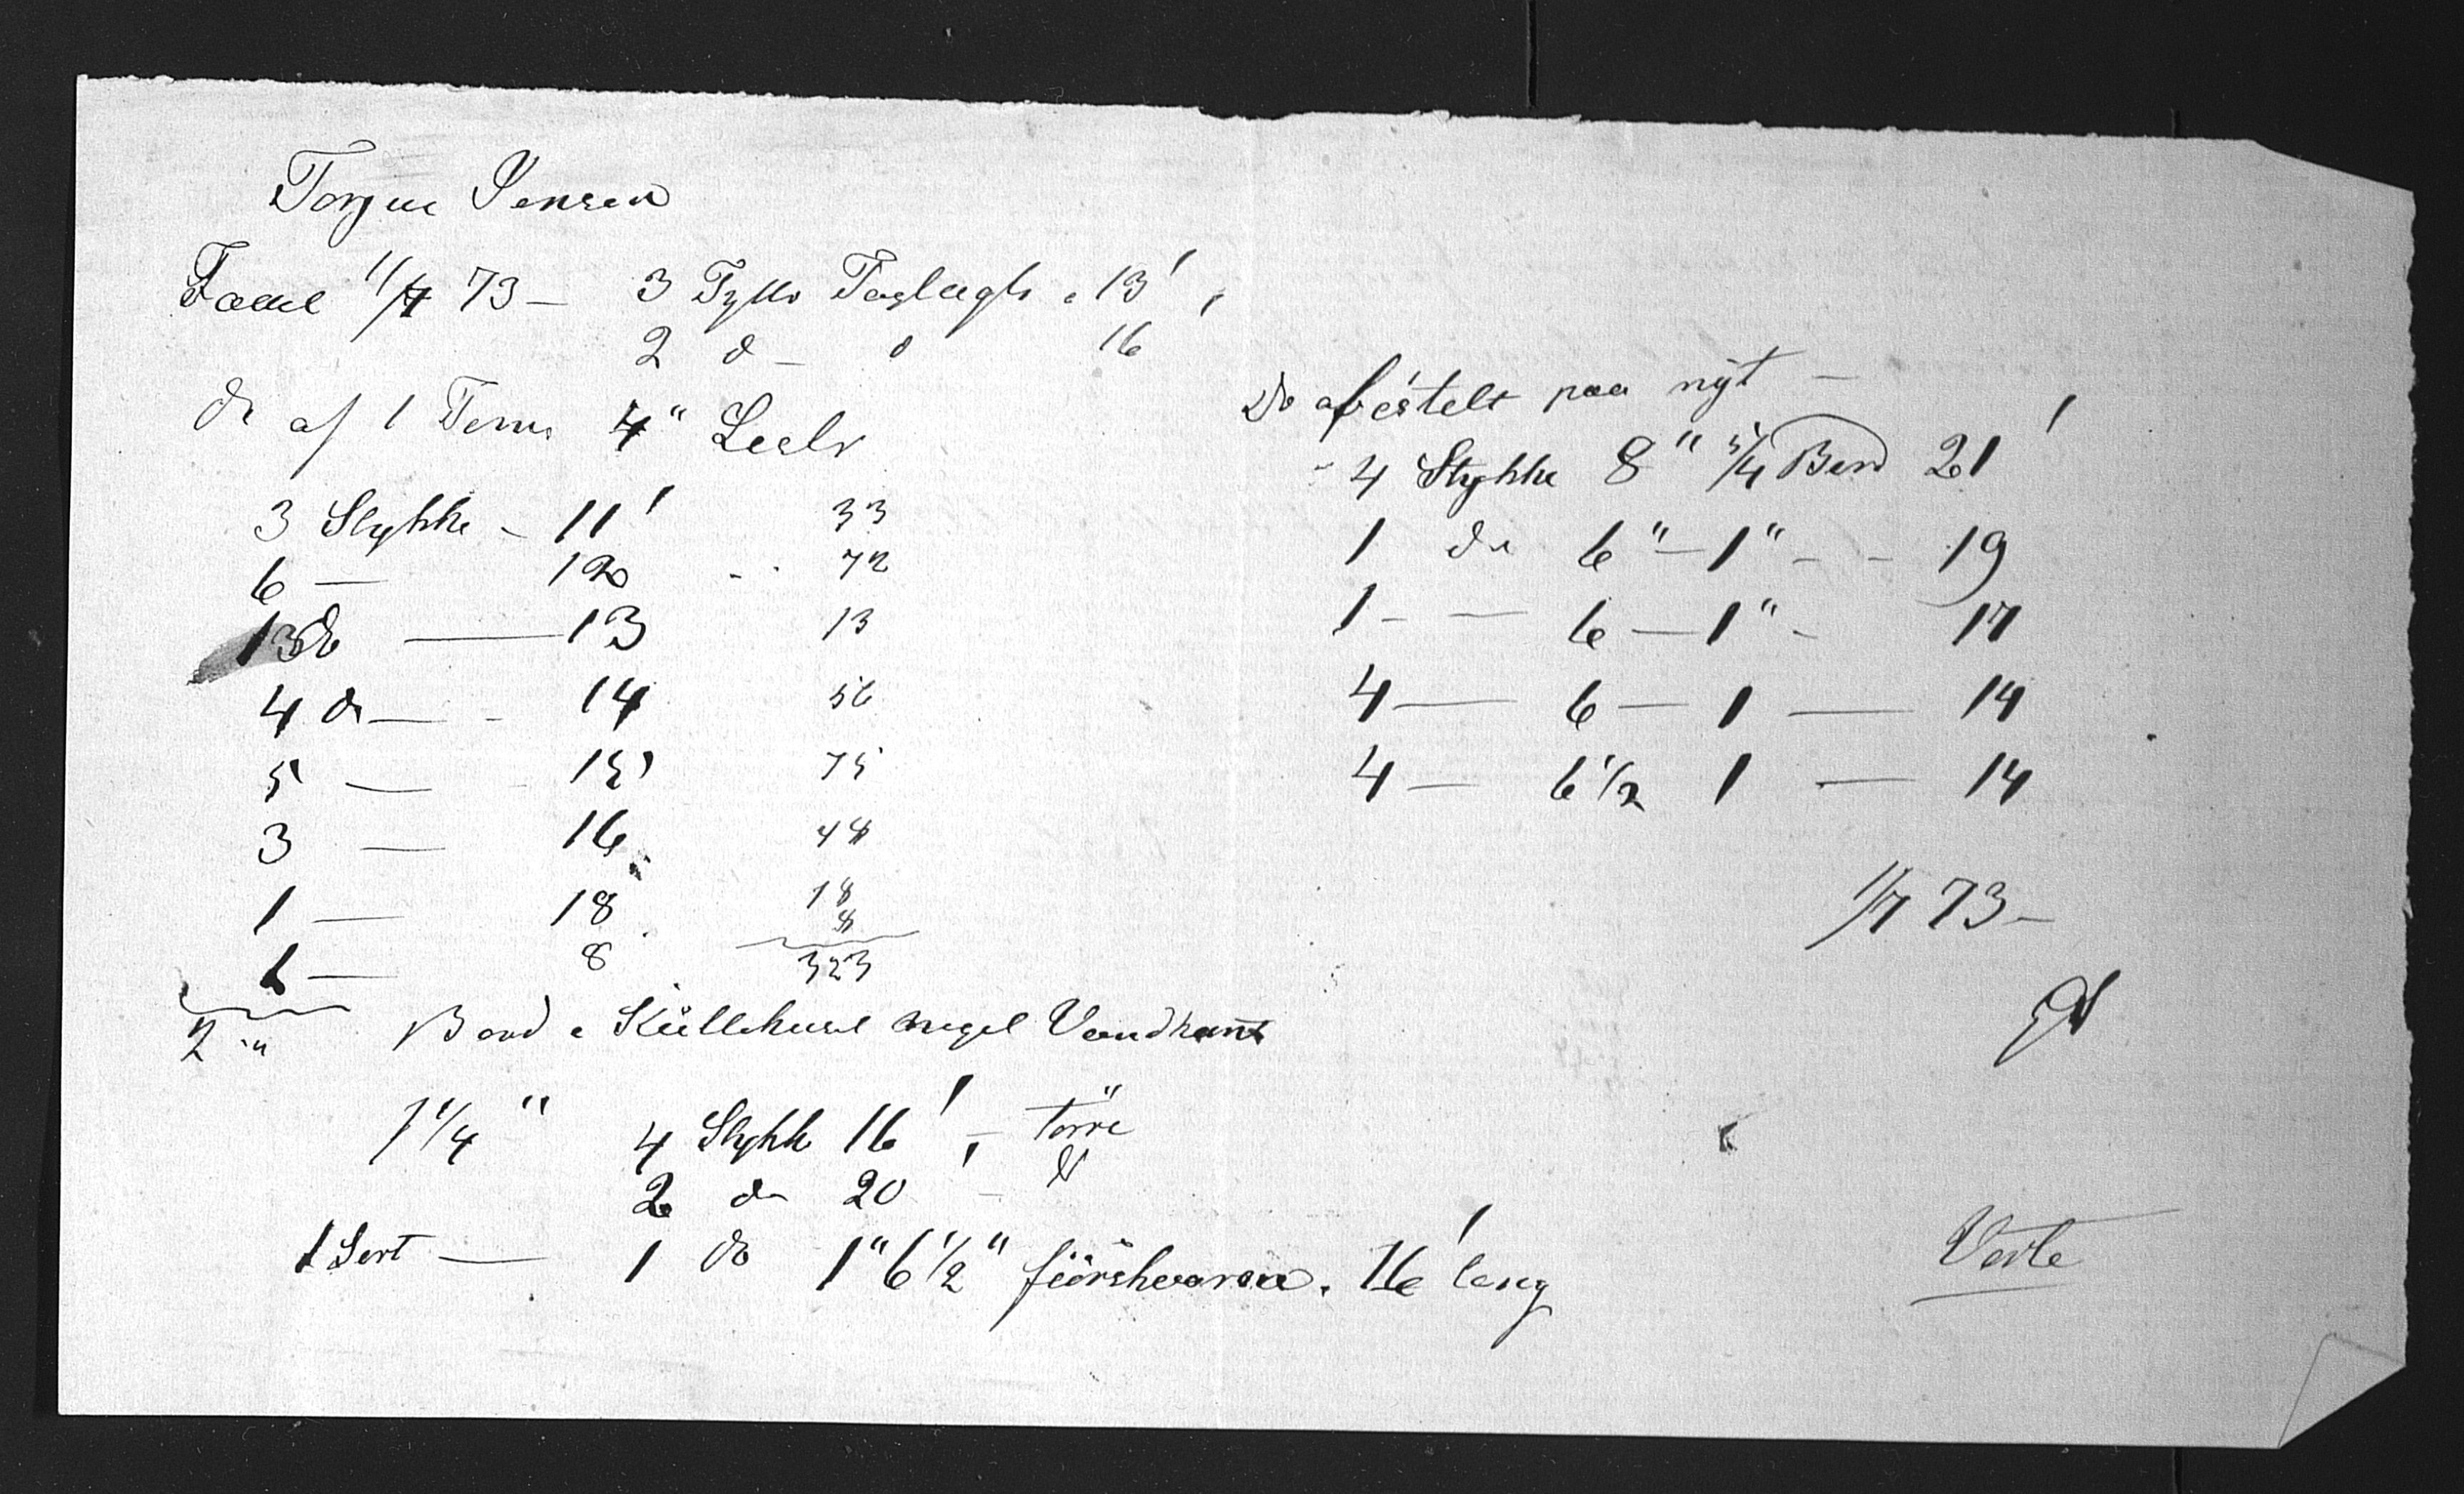 Torjus Jensen
Faaet 11/7 73 — 3 Tylt Taglægt a 13'
2 d — d 16
do af 1 Toms 4" Legter
3 Stykke - 11' 33
6 — 12 - - 72
1 do — 13 13
4 do — - 14 56
5 — 15 75
3 — 16 48
1 — 18 18
1 — 8 8
323
Bord a Küllehuset meget Vandkant
1 1/4 " 4 Stykk 16' - törre
2 do 20 - d
1 Sort — 1 do 1" 6 1/2" 16' lang
Do bestelt paa nÿt —
- 4 Stykke 8" 5/4 Bord 21'
1 do 6" — 1" - - 19
1 - — 6 — 1" - 17
4 — 6 — 1 — 14
4 — 6 1/2 1 — 14
11/7 73 —
Verte